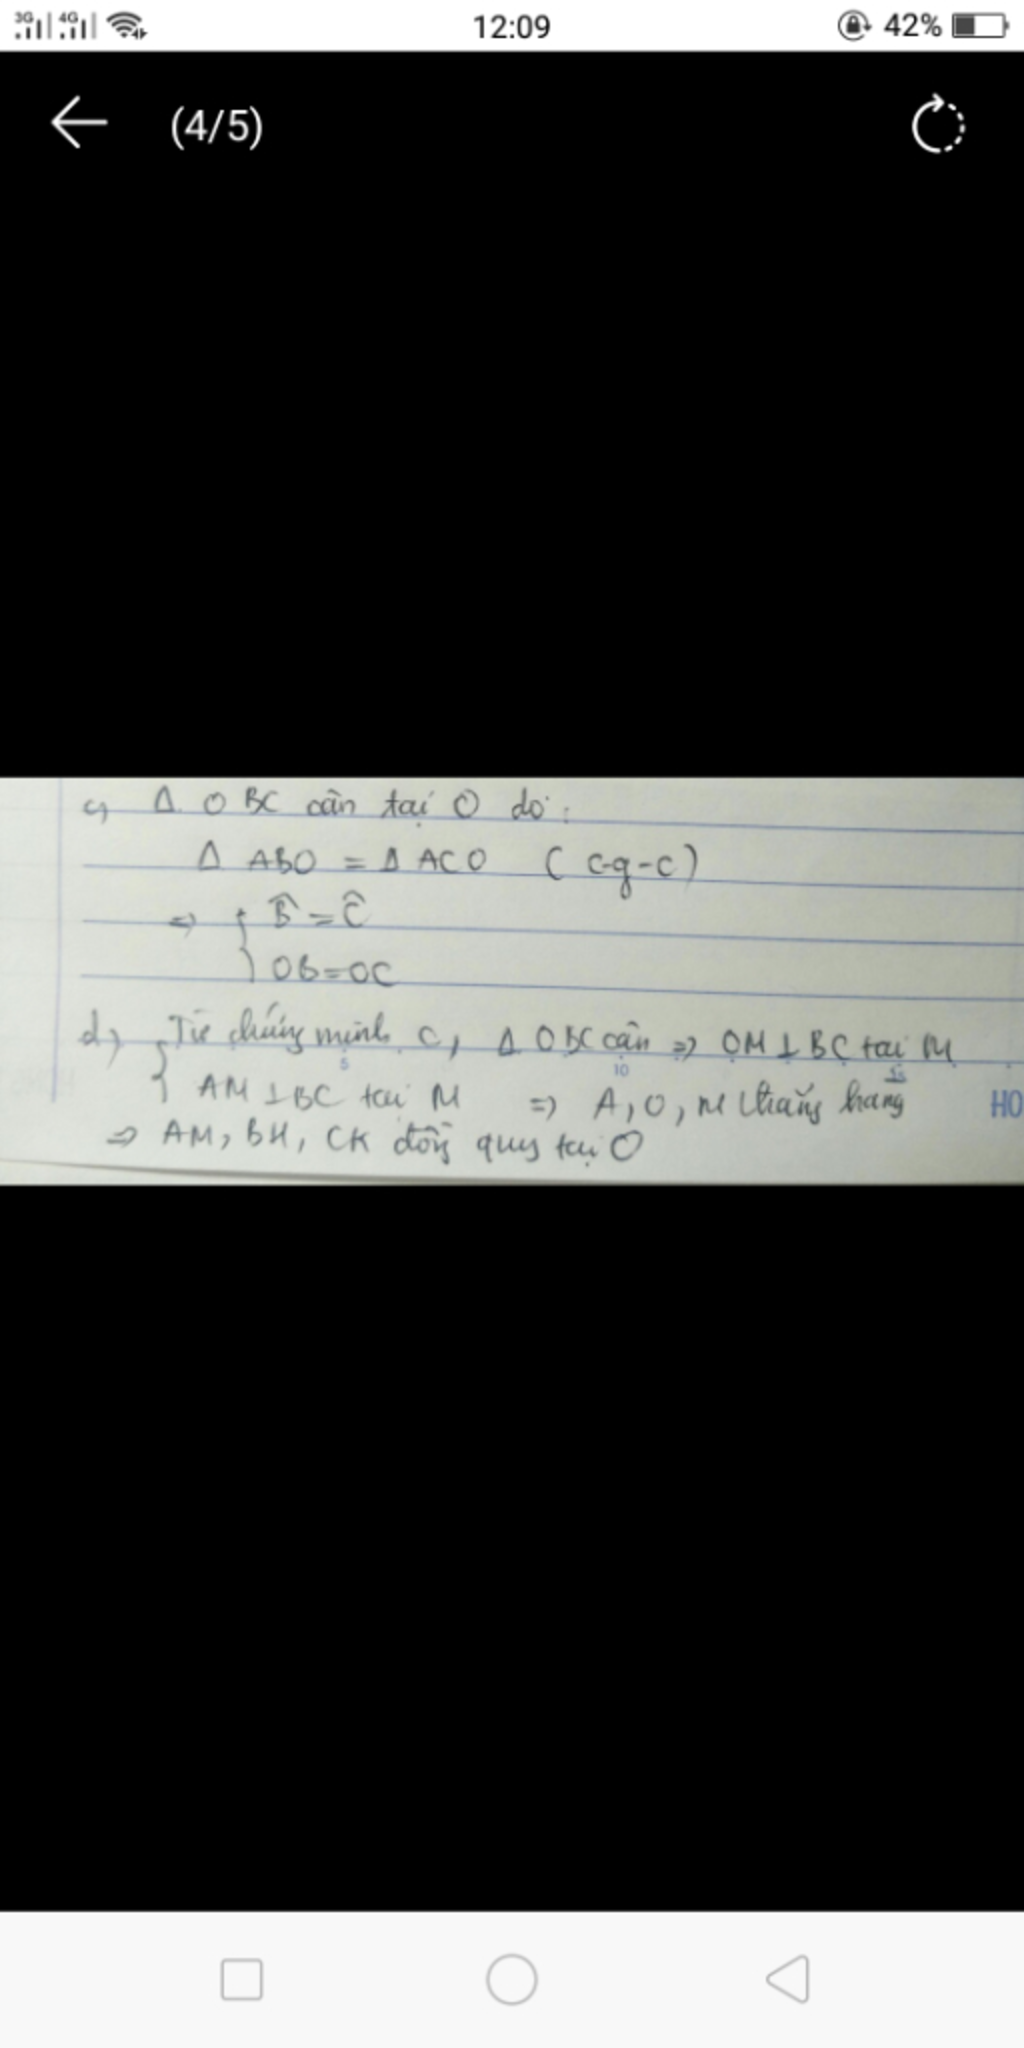 3G 4G 12:09 42%
(4/5)
c, Δ OBC cân tại O do:
Δ ABO = Δ ACO (c-g-c)
=> { B̂ = Ĉ
OB=OC
d) { Từ chứng minh c, Δ OBC cân => OM ⊥ BC tại M
5 10 15
AM ⊥ BC tại M => A, O, M thẳng hàng HO
=> AM, BH, CK đồng quy tại O